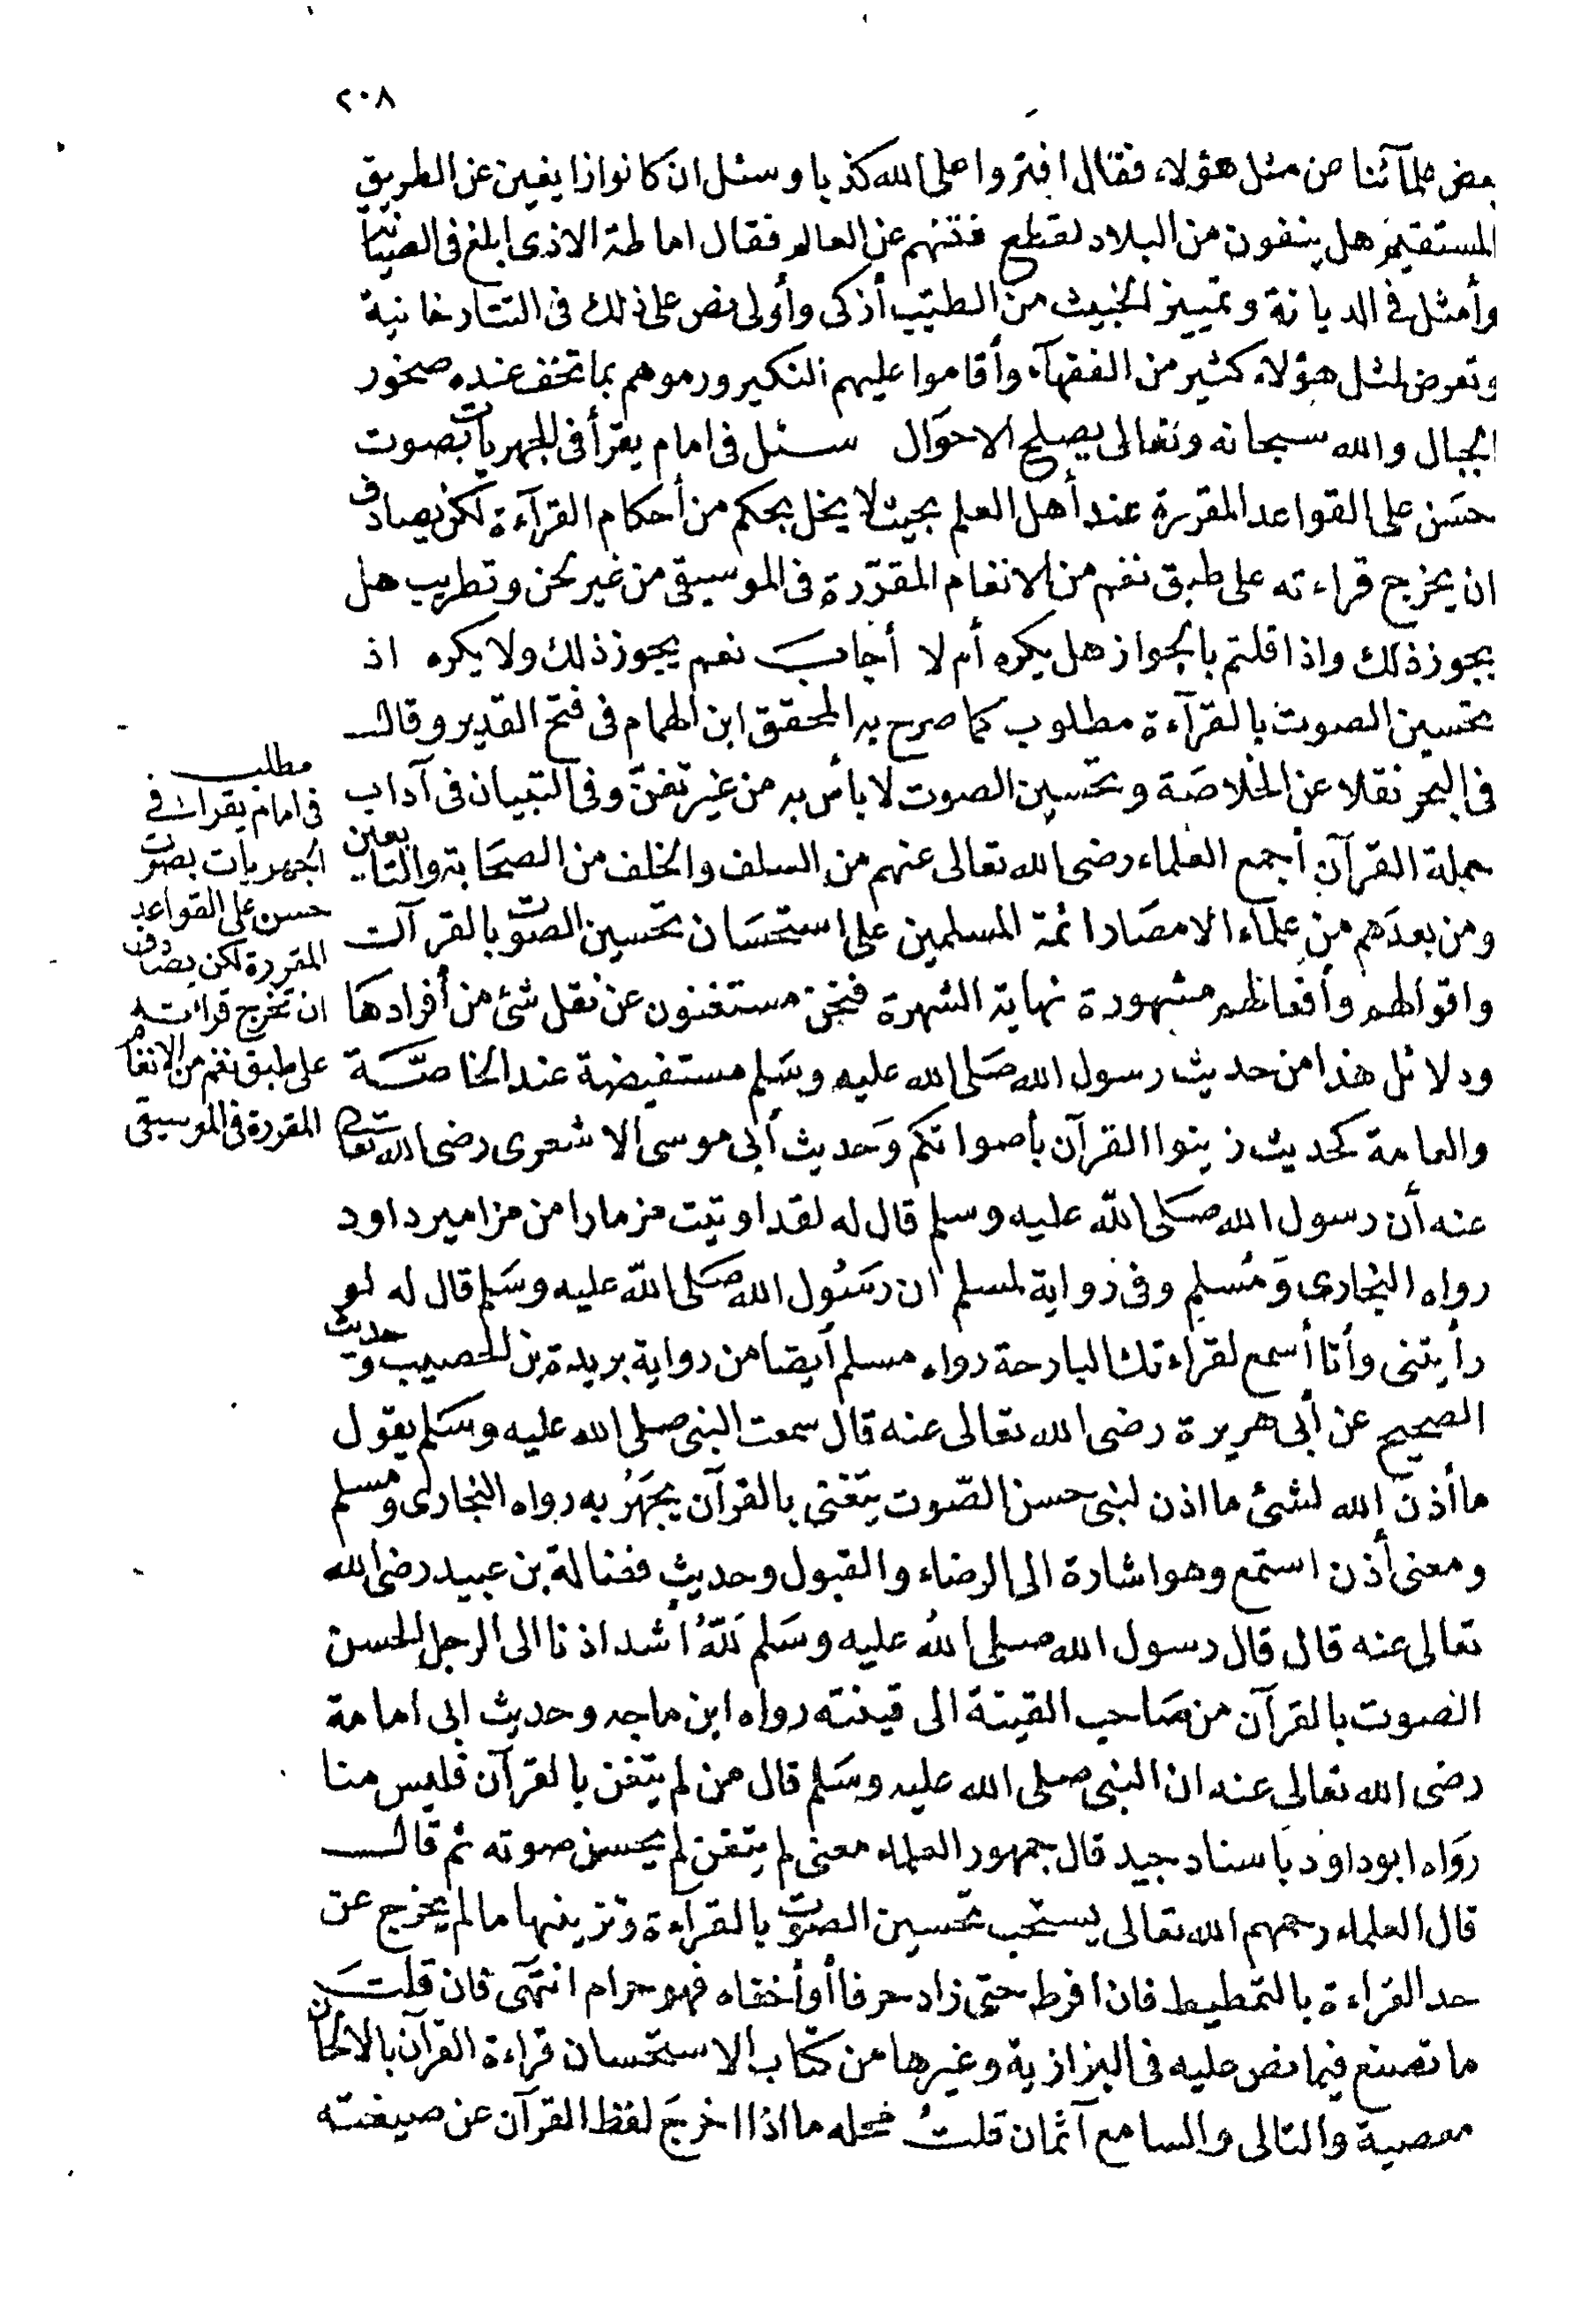 ٢٠٨
بعض علمآئنا من مثل هؤلاء فقال افتروا على الله كذبا وسئل ان كانوا زايغين عن الطريق
المستقيم هل ينفون من البلاد لقطع فتنهم عن العالم فقال اماطة الاذى ابلغ فى الصيانة
وأمثل فى الديانة وتمييز الخبيث من الطيّب أزكى وأولى نص على ذلك فى التتارخانية
وتعرض لمثل هؤلاء كثير من الفقهآء وأقاموا عليهم النكير ورموهم بما تخف عنده صخور
الجبال والله سبحانه وتعالى يصلح الاحوال سئل فى امام يقرأ فى الجهريات بصوت
حسَن على القواعد المقررة عند أهل العلم بحيث لا يخل بحكم من أحكام القرآءة لكن يصادف
ان يخرج قراءته على طبق نغم من الانغام المقرّرة فى الموسيقى من غير لحن وتطريب هل
يجوز ذلك واذا قلتم بالجواز هل يكره أم لا أجاب نعم يجوز ذلك ولا يكره اذ
تحسين الصوت بالقرآءة مطلوب كما صرح به المحقق ابن الهمام فى فتح القدير وقال
فى البحر نقلا عن الخلاصَة وتحسين الصوت لا بأس به من غير تغنّ وفى التبيان فى آداب
حملة القرآن أجمع العلماء رضى الله تعالى عنهم من السلف والخلف من الصحَابة والتابعين
ومن بعدَهم من علماء الامصَار ائمة المسلمين على استحسَان تحسين الصّوت بالقرآن
واقوالهم وأفعالهم مشهورة نهاية الشهرة فنحن مستغنون عن نقل شئ من أفرادهَا
ودلائل هذا من حديث رسول الله صَلى الله عليه وسَلم مستفيضة عند الخاصّة
والعامة كحديث زينوا القرآن بأصواتكم وَحديث أبى موسى الاشعرى رضى الله تعالى
عنه أن رسول الله صَلى اللّه عليه وسلم قال له لقد اوتيت مزمارا من مزامير داود
رواه البخارى وَمُسلم وفى رواية لمسلم ان رسَُول الله صَلى اللّه عليه وسَلم قال له لو
رأيتنى وأنا أسمع لقراءتك البارحة رواه مسلم أيضا من رواية بريدة بن الحصيب وحديث
الصحيح عن أبى هريرة رضى الله تعالى عنه قال سمعت النبى صلى الله عليه وسَلم يقول
ما أذن الله لشئ ما اذن لنبى حسن الصّوت يتغنى بالقرآن يجهَرُ به رواه البخارى ومسلم
ومعنى أذن استمع وهو اشارة الى الرضاء والقبول وحديث فضالة بن عبيد رضى الله
تعالى عنه قال قال رسول الله صلى الله عليه وسَلم للّهُ أشد اذنا الى الرجل الحسن
الصوت بالقرآن من صَاحب القينة الى قينته رواه ابن ماجه وحديث ابى امامة
رضى الله تعالى عنه ان النبى صلى الله عليه وسَلم قال من لم يتغن بالقرآن فليس منا
روَاه ابو داود باسناد جيد قال جمهور العلماء معنى لم يتغن لم يحسن صوته ثم قال
قال العلماء رحمهم الله تعالى يستحب تحسين الصّوت بالقراءة وتزيينها ما لم يخرج عن
حد القراءة بالتمطيط فان افرط حتى زاد حرفا أو أخفاه فهو حرام انتهى فان قلتَ
ما تصنع فيما نص عليه فى البزازية وغيرها من كتاب الاستحسان قراءة القرآن بالالحان
معصية والتالى والسامع آثمان قلتُ محله ما اذا اخرجَ لفظ القرآن عن صيغته
مطلب
فى امام يقرأ فى
الجهريات بصوت
حسن على القواعد
المقررة لكن يصادف
ان تخرج قراءته
على طبق نغم من الانغام
المقررة فى الموسيقى